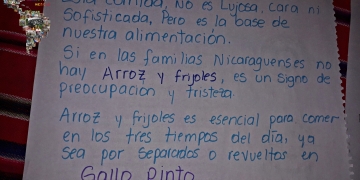 comida, No es Lujosa, cara ni
sofisticada, Pero es la base de
nuestra alimentación.
Si en las familias Nicaraguenses no
hay Arroz y frijoles, es un signo de
preocupación y tristeza.
Arroz y frijoles es esencial para comer
en los tres tiempos del día, ya
sea por separados o revueltos en
Gallo Pinto